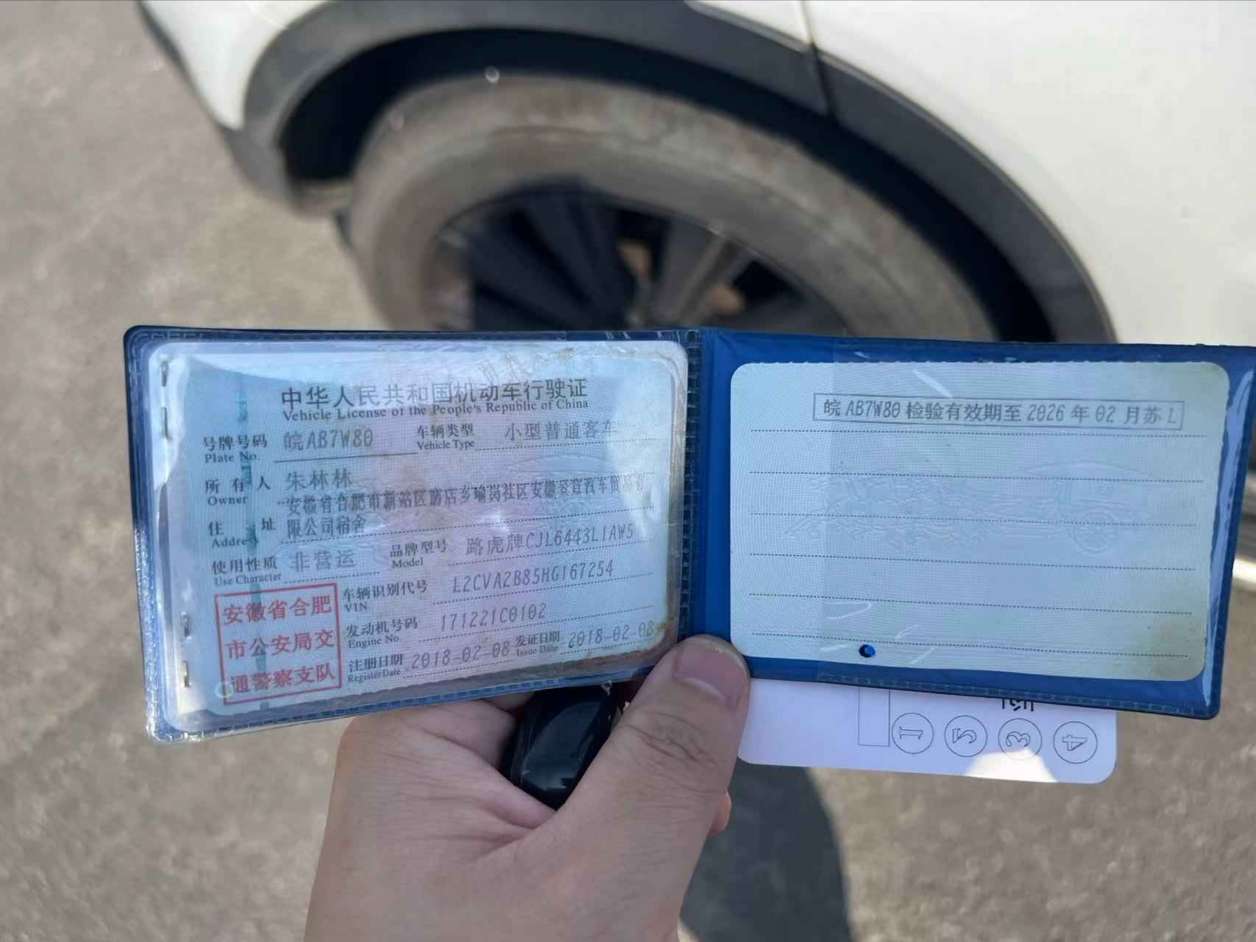 中华人民共和国机动车行驶证
Vehicle License of the People's Republic of China
号牌号码 皖AB7W80 车辆类型 小型普通客车
Plate No. Vehicle Type
所有人 朱林林
Owner
安徽省合肥市新站区磨店乡瑜岗社区安徽 汽车
住址 限公司宿舍
Address
使用性质 非营运 品牌型号 路虎牌CJL6443L1AW5
Use Character Model
车辆识别代号 L2CVA2B85HG167254
VIN
发动机号码 171221C0102
Engine No.
注册日期 2018-02-08 发证日期 2018-02-08
Register Date Issue Date
安徽省合肥
市公安局交
通警察支队
皖AB7W80检验有效期至2026年02月苏L
1 5 3 4